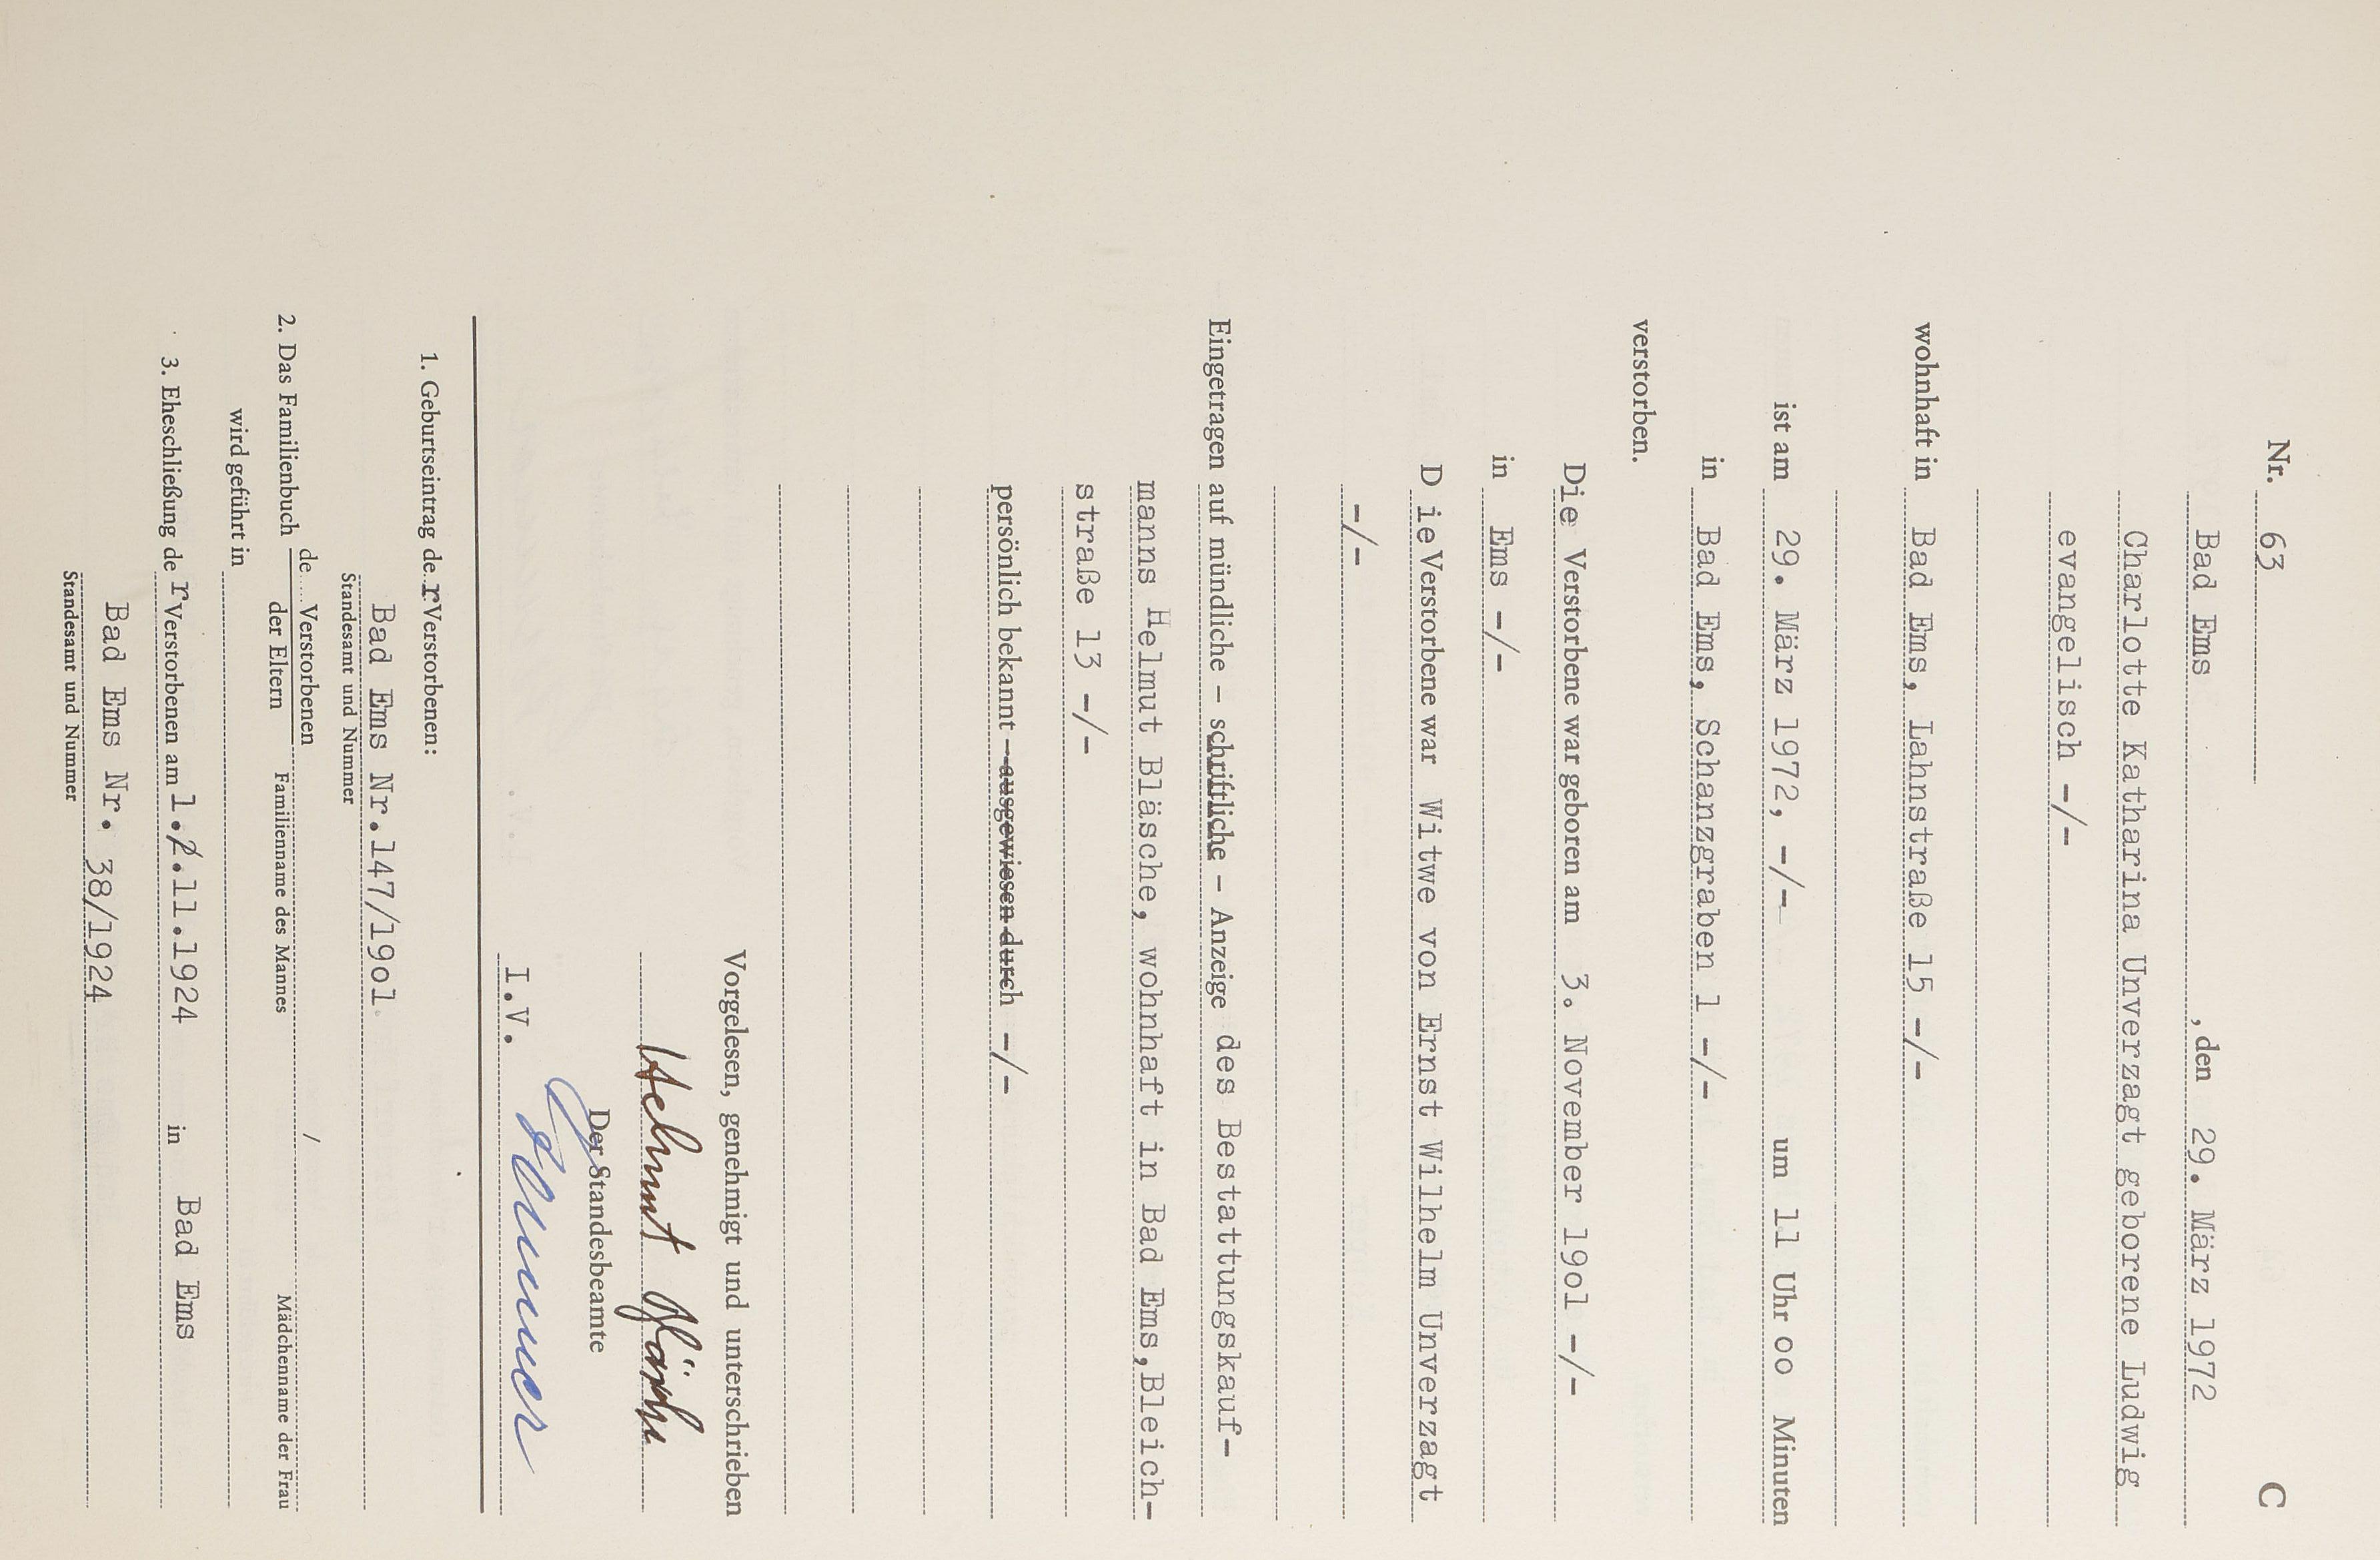 Nr. 63 C
Bad Ems , den 29. März 1972
Charlotte Katharina Unverzagt geborene Ludwig
evangelisch -/-
wohnhaft in Bad Ems, Lahnstraße 15 -/-
ist am 29. März 1972, -/- um 11 Uhr oo Minuten
in Bad Ems, Schanzgraben 1 -/-
verstorben.
Die Verstorbene war geboren am 3. November 19o1 -/-
in Ems -/-
D ie Verstorbene war Witwe von Ernst Wilhelm Unverzagt
-/-
Eingetragen auf mündliche – schriftliche – Anzeige des Bestattungskauf-
manns Helmut Bläsche, wohnhaft in Bad Ems,Bleich-
straße 13 -/-
persönlich bekannt – ausgewiesen durch -/-
Vorgelesen, genehmigt und unterschrieben
Helmut Bläsche
Der Standesbeamte
I.V.
1. Geburtseintrag de r Verstorbenen:
Bad Ems Nr.147/19o1.
Standesamt und Nummer
2. Das Familienbuch de.... Verstorbenen /
der Eltern Familienname des Mannes Mädchenname der Frau
wird geführt in
3. Eheschließung de r Verstorbenen am 1.2.11.1924 in Bad Ems
Bad Ems Nr. 38/1924
Standesamt und Nummer